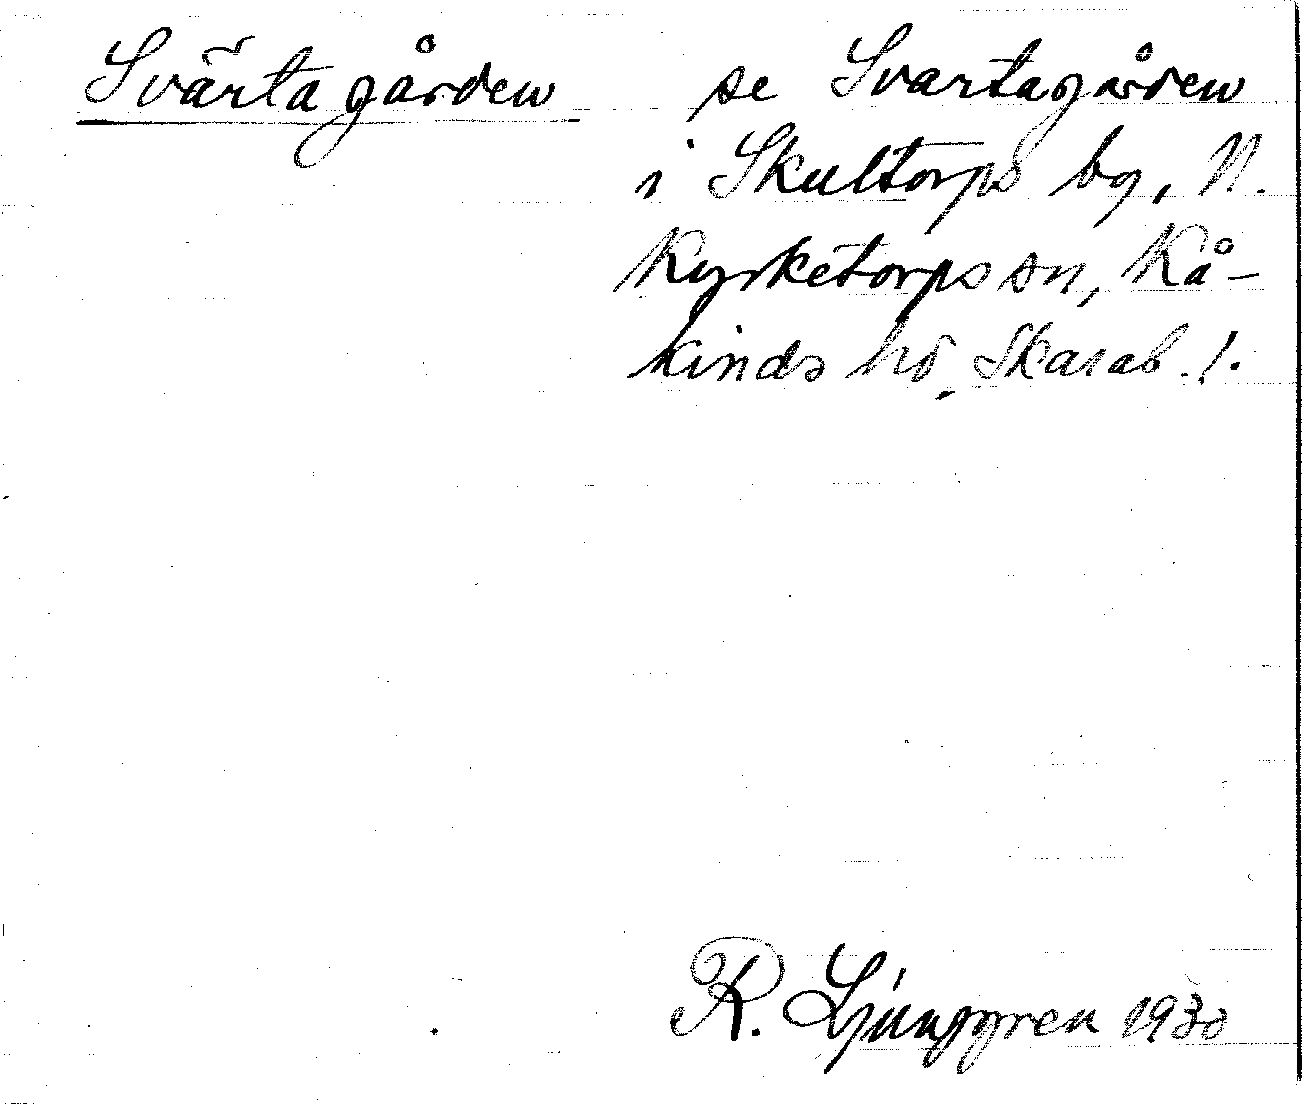 Svärtagården se Svartagården
i Skultorps by, N.
Kyrketorps sn, Kå-
kinds hd, Skarab. l.
R. Ljunggren 1930